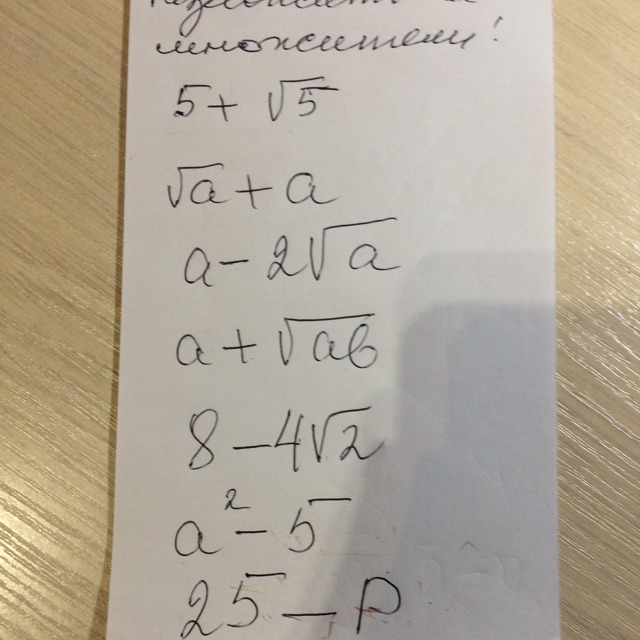 множители!
5 + √5
√a + a
a - 2√a
a + √ab
8 - 4√2
a² - 5
25 - p